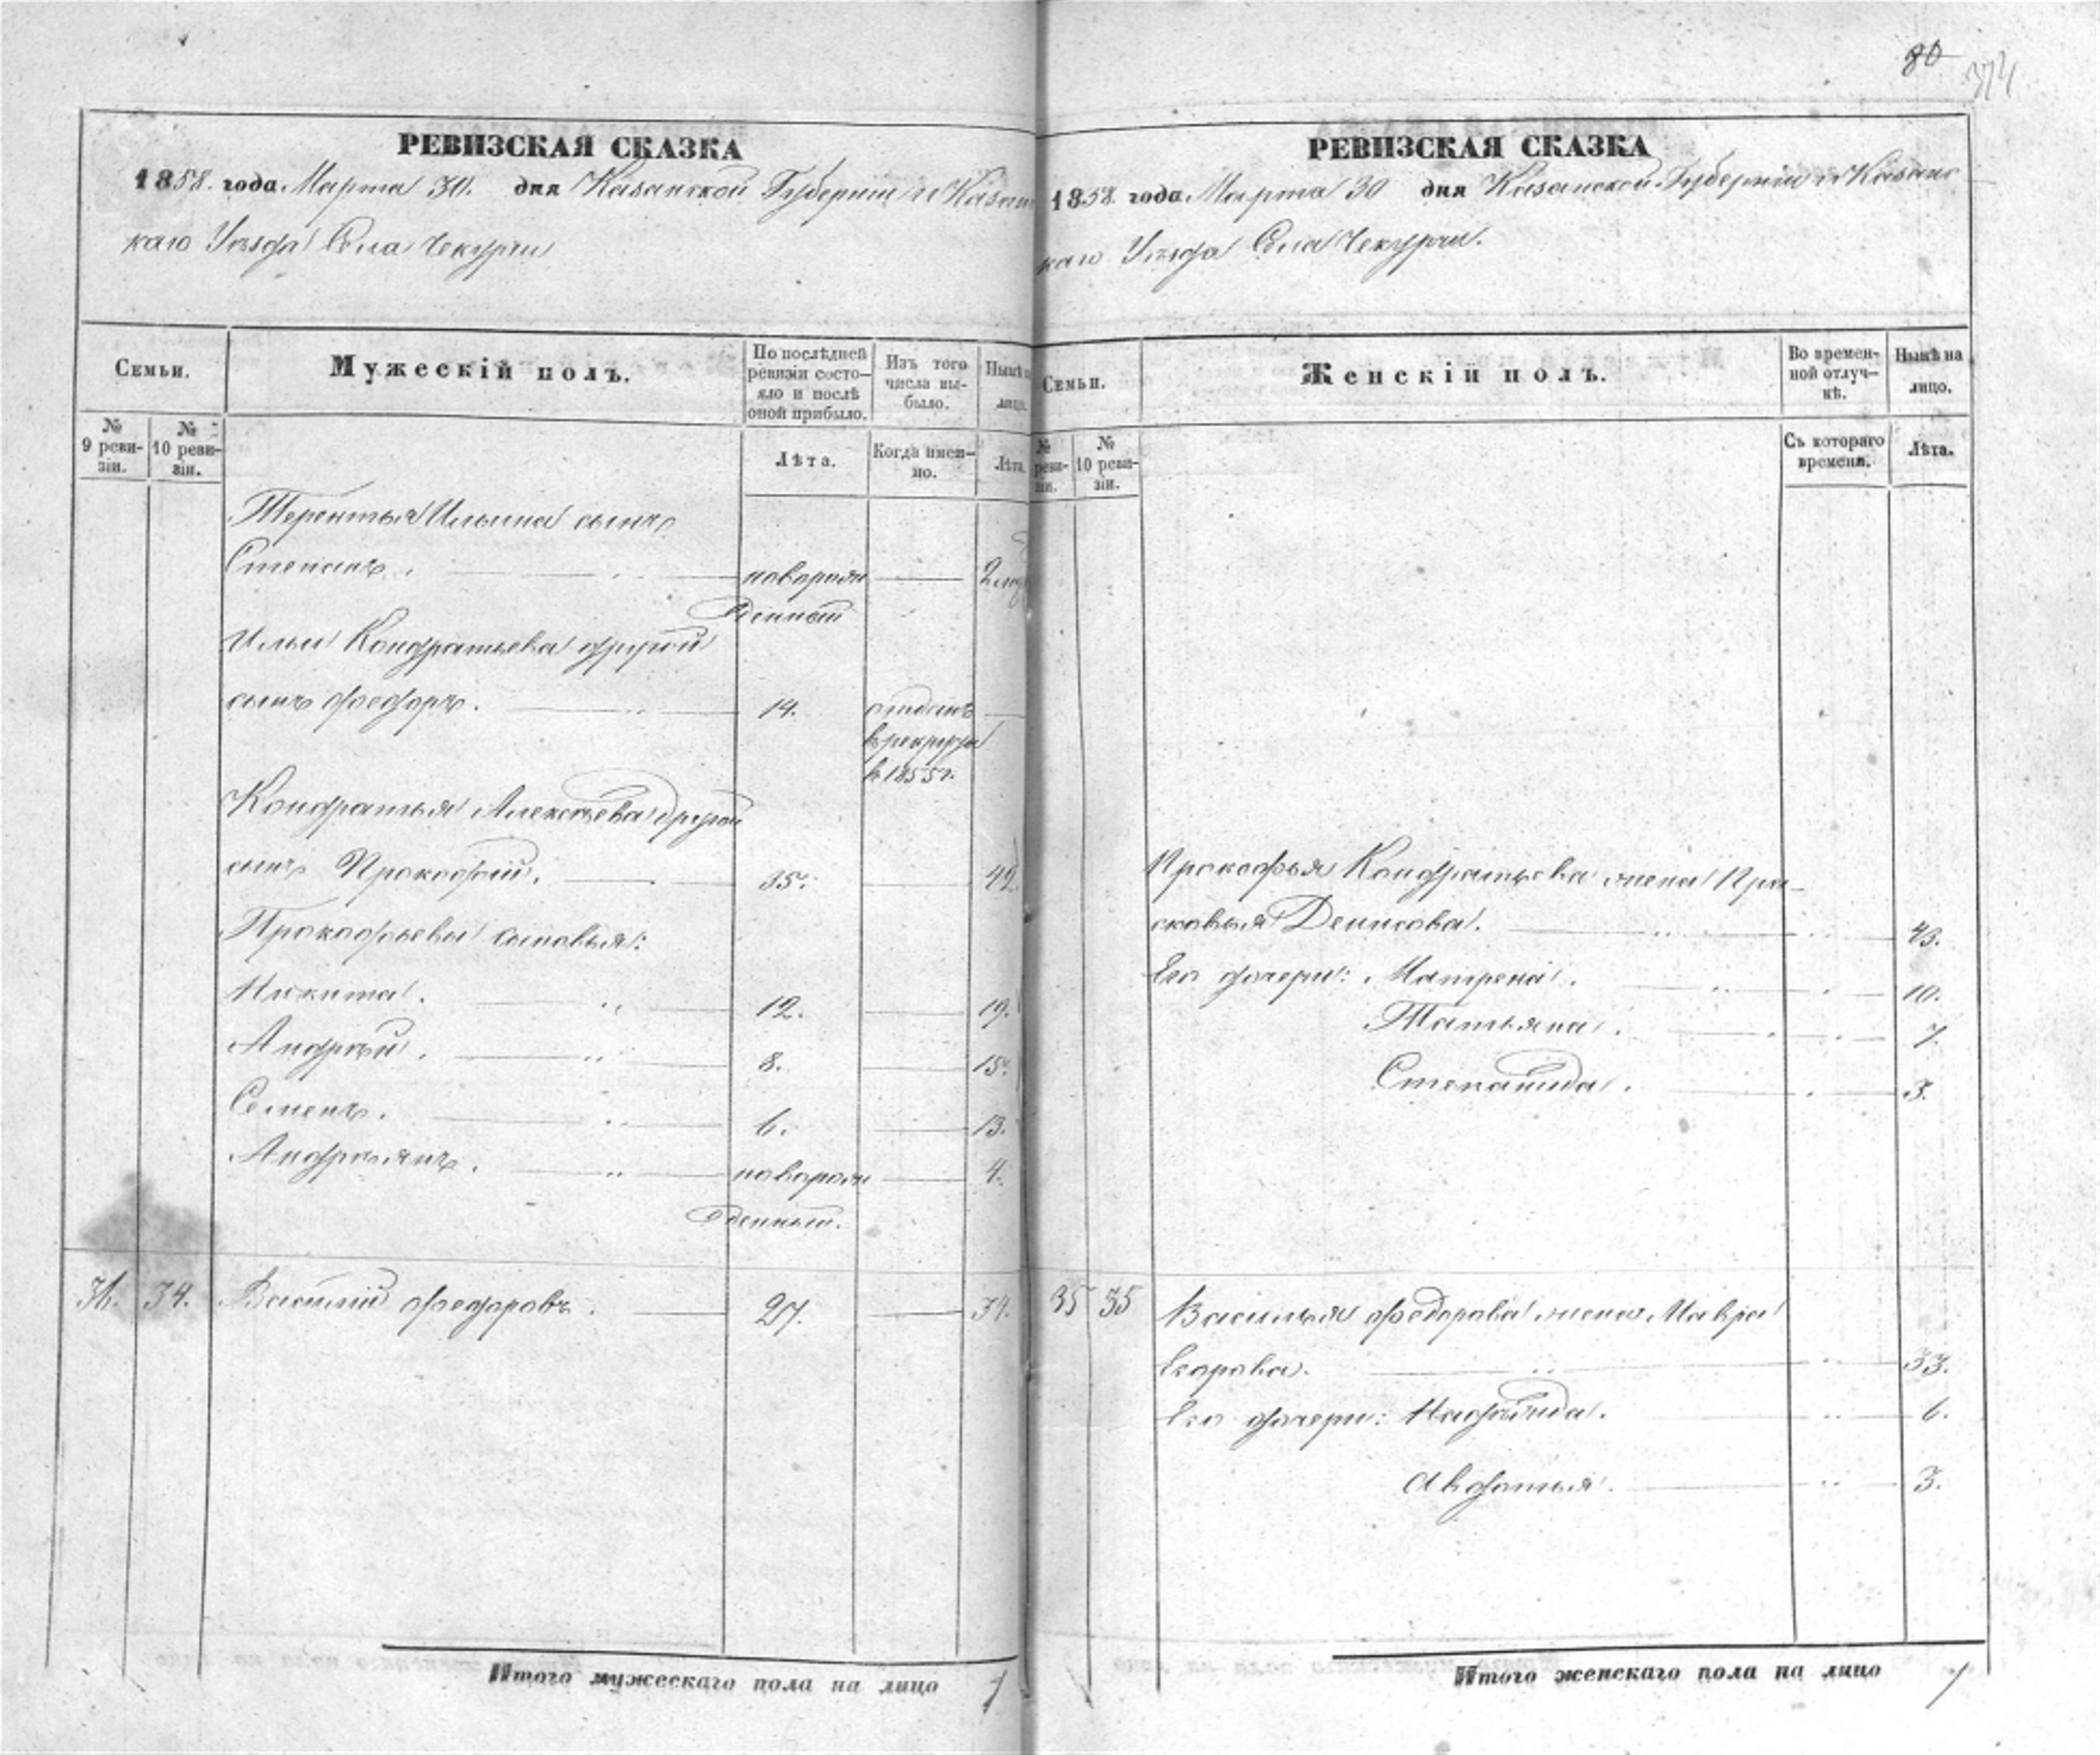 80
РЕВИЗСКАЯ СКАЗКА
1858. года Марта 30. дня Казанской Губерніи и Казанс
каго Уѣзда Села Чекурчи
Семьи.
Мужескій полъ.
По послѣдней ревизіи состо-
яло и послѣ оной прибыло.
Изъ того числа вы-
было.
Нынѣ на лицо.
№ 9 реви-
зіи.
№ 10 реви-
зіи.
Лѣта.
Когда имен-
но.
Лѣта.
Терентья Ильина сынъ
Степанъ. новорож
денный
Ильи Кондратьева другой
сынъ Ѳедоръ. 14. отданъ
в рекруты
в 1855 г.
Кондратья Алексѣева другой
сынъ Прокофій. 35. 42.
Прокофьевы сыновья:
Никита. 12. 19.
Андрей. 8. 15.
Семенъ. 6. 13.
Андреянъ. новорож 4.
денный.
36. 34. Василій Ѳедоровъ. 27. 34.
Итого мужескаго пола на лицо 7
РЕВИЗСКАЯ СКАЗКА
1858. года Марта 30 дня Казанской Губерніи и Казанс
каго Уѣзда Села Чекурчи.
Семьи.
Женскій полъ.
Во времен-
ной отлуч-
кѣ.
Нынѣ на лицо.
№ реви-
зіи.
№ 10 реви-
зіи.
Съ котораго времени.
Лѣта.
Прокофья Кондратьева жена Пра-
сковья Денисова. 43.
Его дочери: Матрена. 10.
Татьяна. 7.
Степанида. 3.
35 35 Василья Ѳедорова жена Мавра
Егорова. 33.
Его дочери: 6.
Авдотья. 3.
Итого женскаго пола на лицо 7